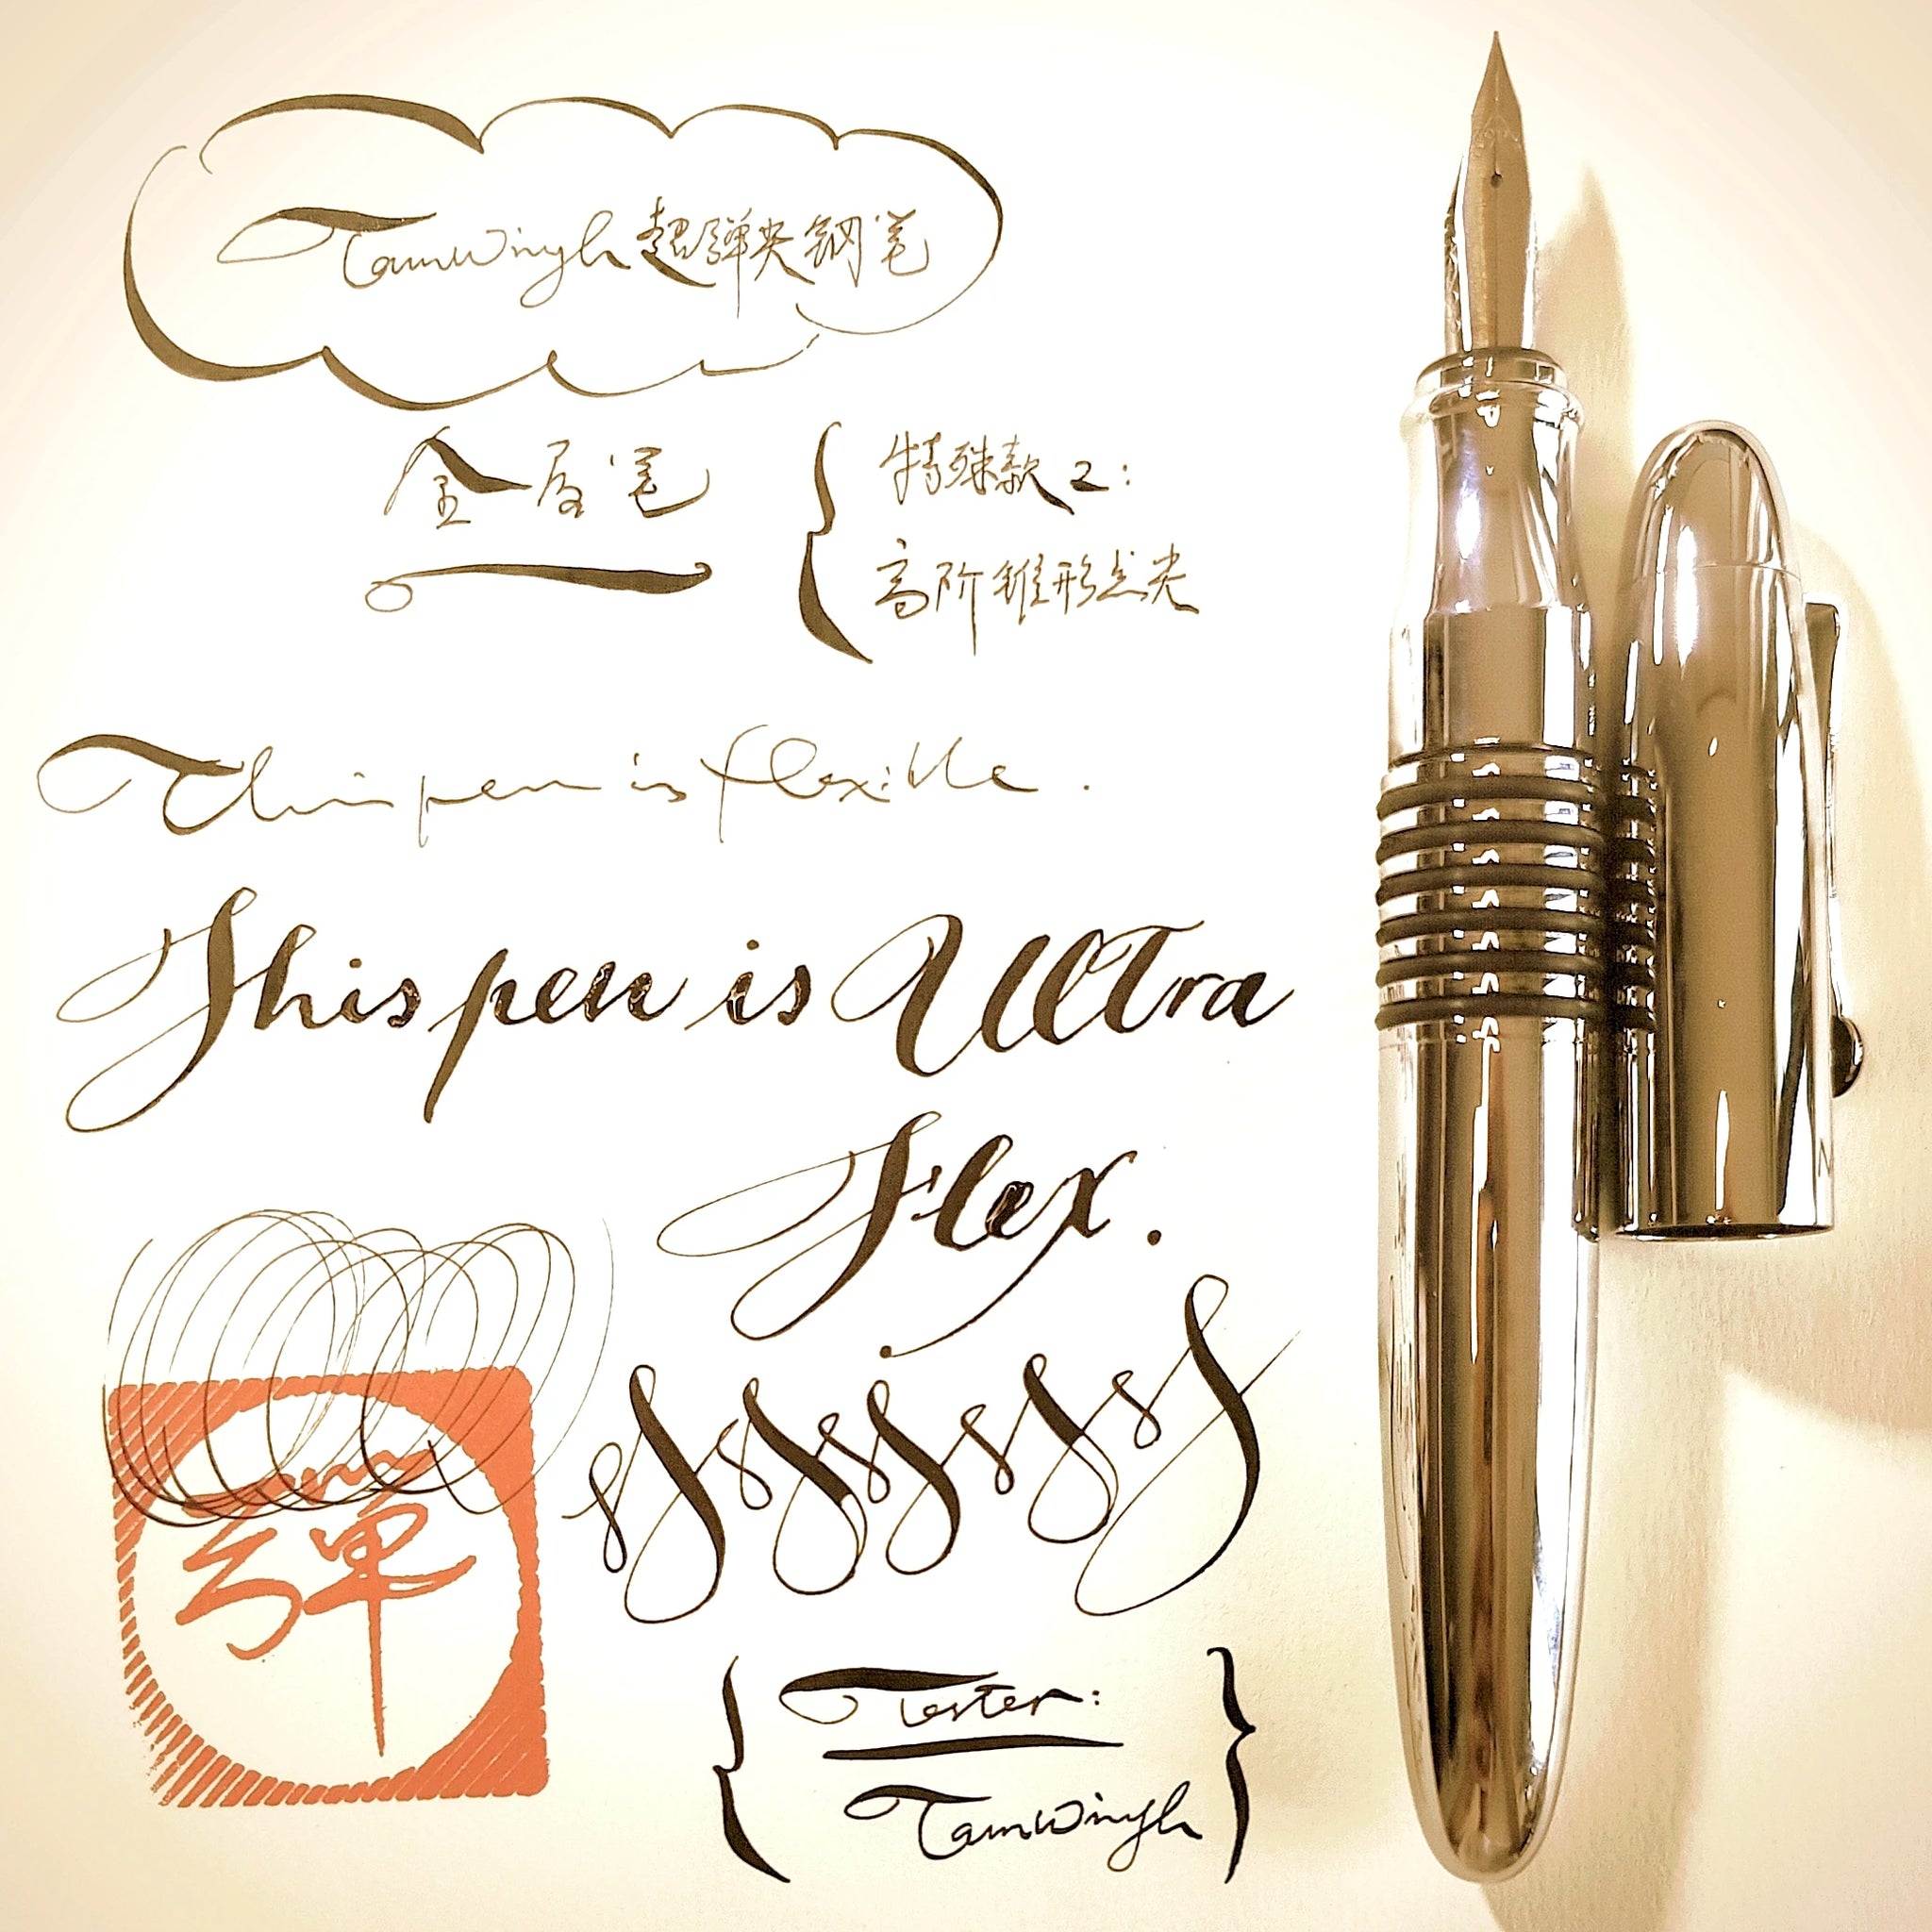 TamWingh超弹尖钢笔
金属笔
特殊款2:
高阶锥形点尖
This pen is flexible.
This pen is Ultra
Flex.
彈
Tester:
TamWingh